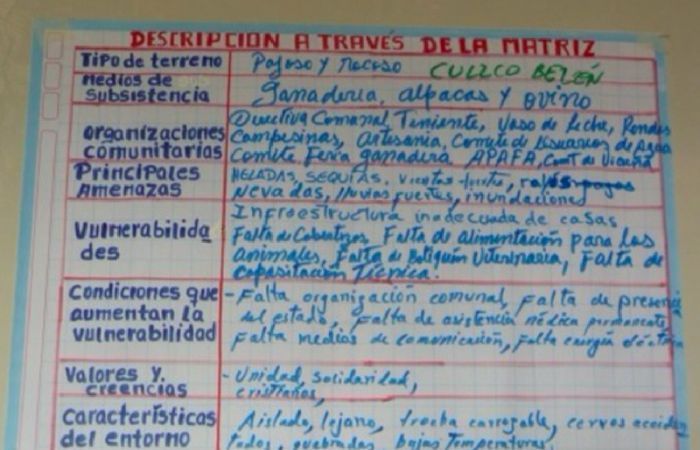 DESCRIPCION A TRAVÉS DE LA MATRIZ
Tipo de terreno
Pajoso y rocoso
CULLCO BELÉN
Medios de
subsistencia
Ganaderia, alpacas y ovino
organizaciones
comunitarias
Directiva Comunal, Teniente, Vaso de Leche, Rondas
Campesinas, Artesania, Comite de Usuarios de Agua
Comite Feria ganadera APAFA, Comt de Vicuña
Principales
Amenazas
HELADAS, SEQUIAS, vientos fuertes, rayos
Nevadas, lluvias fuertes, inundaciones
Vulnerabilida
des
Infraestructura inadecuada de casas
Falta de Cobertizos, Falta de alimentación para los
animales, Falta de Botiquin Veterinaria, Falta de
Capasitación Técnica.
Condiciones que
aumentan la
vulnerabilidad
- Falta organización comunal, Falta de presencia
del estado, Falta de asistencia médica permanente
Falta medios de comunicación, Falta energia eléctrica
Valores y.
creencias
- Unidad, solidaridad,
cristianos,
Características
del entorno
Aislado, lejano, trocha carrozable, cerros acciden
tados, quebradas, bajas Temperaturas.